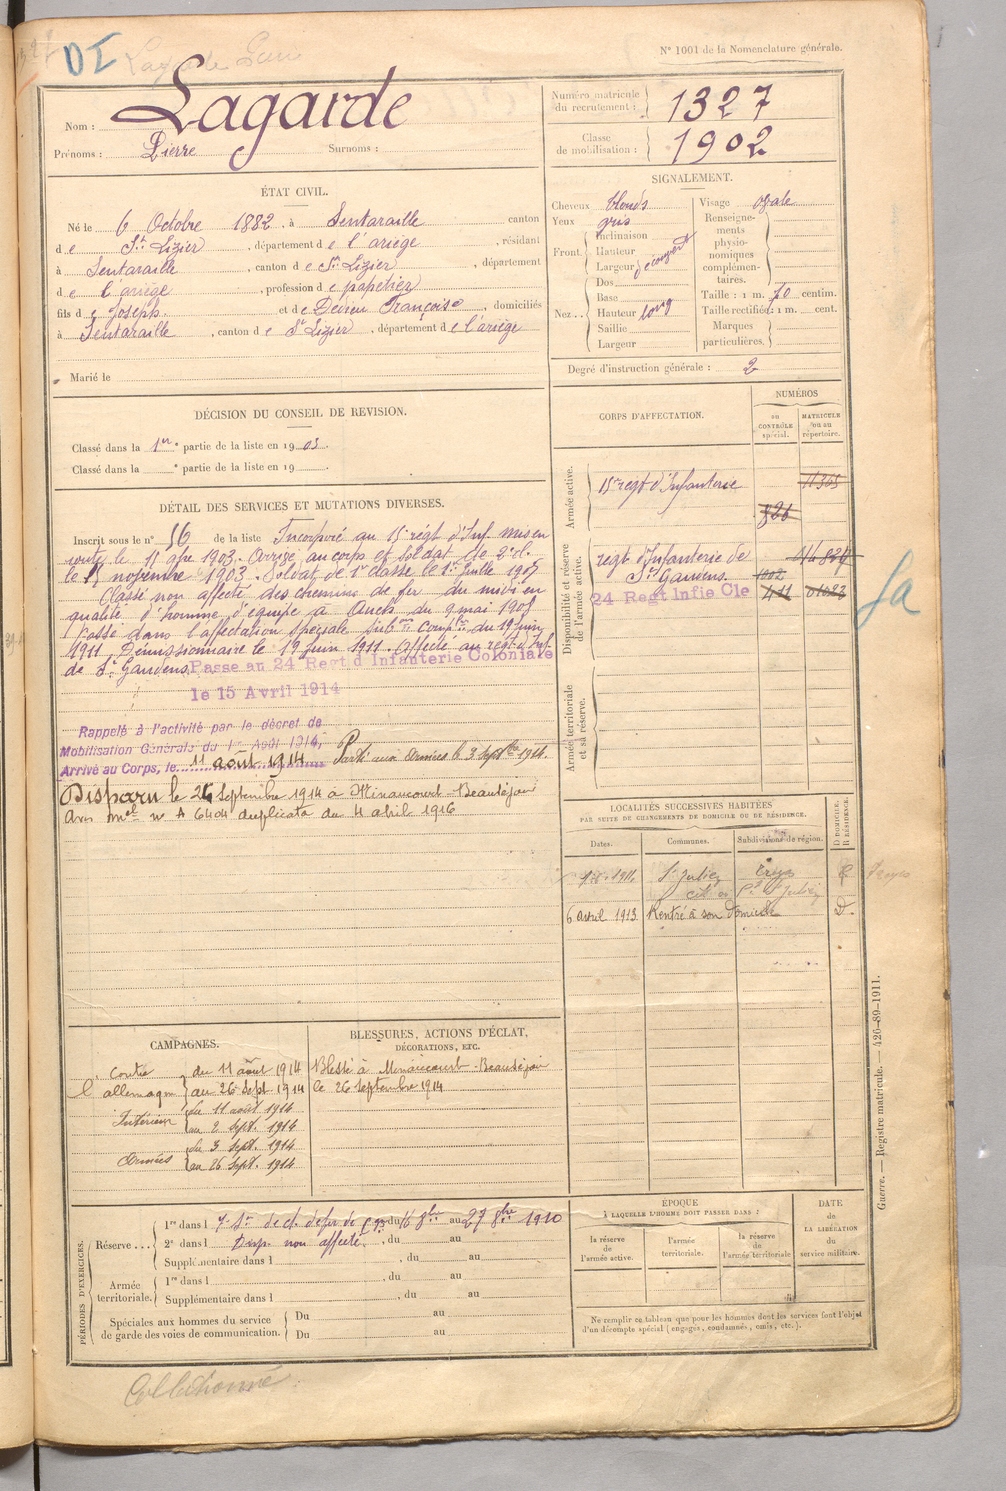 DI
N° 1001 de la Nomenclature générale.
Nom : Lagarde
Prénoms : Pierre Surnoms :
Numéro matricule du recrutement : 1327
Classe de mobilisation : 1902
ÉTAT CIVIL.
Né le 6 Octobre 1882, à Sentaraille canton
de St Lizier, département de l'ariège, résidant
à Sentaraille, canton de St Lizier, département
de l'ariège, profession de papetier
fils de Joseph et de Dédieu Françoise, domiciliés
à Sentaraille, canton de St Lizier, département de l'ariège
Marié le
SIGNALEMENT.
Cheveux blonds
Yeux gris
Front. Inclinaison
Hauteur
Largeur découvert
Nez.. Dos
Base
Hauteur long
Saillie
Largeur
Visage ovale
Renseignements physionomiques complémentaires.
Taille : 1 m. 70 centim.
Taille rectifiée : 1 m. cent.
Marques particulières,
Degré d'instruction générale : 2
DÉCISION DU CONSEIL DE REVISION.
Classé dans la 1re partie de la liste en 1903.
Classé dans la e partie de la liste en 19
DÉTAIL DES SERVICES ET MUTATIONS DIVERSES.
Inscrit sous le n° 56 de la liste Incorporé au 15e régt d'Inf. mis en
route le 11 9bre 1903. Arrivé au corps et soldat de 2e cl.
le 15 novembre 1903. Soldat de 1e classe le
Classé non affecté des chemins de fer du midi en
qualité d'homme d'équipe à Auch du 9 mai 1908
Passé dans l'affectation spéciale du 19 juin
1911. Démissionnaire le 19 juin 1911. Affecté au régt d'Inf.
de St Gaudens. Passé au 24 Regt d'Infanterie Coloniale
le 15 Avril 1914
Rappelé à l'activité par le décret de
Mobilisation Générale du 1er Août 1914,
Arrivé au Corps, le 11 août 1914 Parti aux Armées le 3 Septbre 1914.
Disparu le 26 Septembre 1914 à Minaucourt-Beauséjour
Avis mel n° A 6404 duplicata du 4 abril 1916
CORPS D'AFFECTATION.
NUMÉROS
au CONTRÔLE spécial.
MATRICULE ou au répertoire.
Armée active.
15e régt d'Infanterie 11365
826
Disponibilité et réserve de l'armée active.
régt d'Infanterie de
St Gaudens
24 Regt Infie Cle 411
Armée territoriale et sa réserve.
LOCALITÉS SUCCESSIVES HABITÉES
PAR SUITE DE CHANGEMENTS DE DOMICILE OU DE RÉSIDENCE.
Dates. Communes. Subdivisions de région. D DOMICILE. R RÉSIDENCE.
St Julien
6 avril 1913 Rentré à son Domicile D.
CAMPAGNES.
contre l'allemagne du 11 août 1914
au 26 Sept 1914
Intérieur du 11 août 1914
au 2 sept. 1914
Armées du 3 sept. 1914
au 26 sept. 1914
BLESSURES, ACTIONS D'ÉCLAT,
DÉCORATIONS, ETC.
Blessé à Minaucourt-Beauséjour
le 26 septembre 1914
PÉRIODES D'EXERCICES.
Réserve... 1re dans l au 27 8bre 1910
2e dans l Disp. non affecté, du au
Supplémentaire dans l , du au
Armée territoriale. 1re dans l , du au
Supplémentaire dans l , du au
Spéciales aux hommes du service de garde des voies de communication. Du au
Du au
ÉPOQUE
À LAQUELLE L'HOMME DOIT PASSER DANS :
la réserve de l'armée active.
l'armée territoriale.
la réserve de l'armée territoriale
DATE de LA LIBÉRATION du service militaire.
Ne remplir ce tableau que pour les hommes dont les services font l'objet
d'un décompte spécial (engagés, condamnés, omis, etc.).
Guerre. — Registre matricule. — 426-89-1911.
Collationné